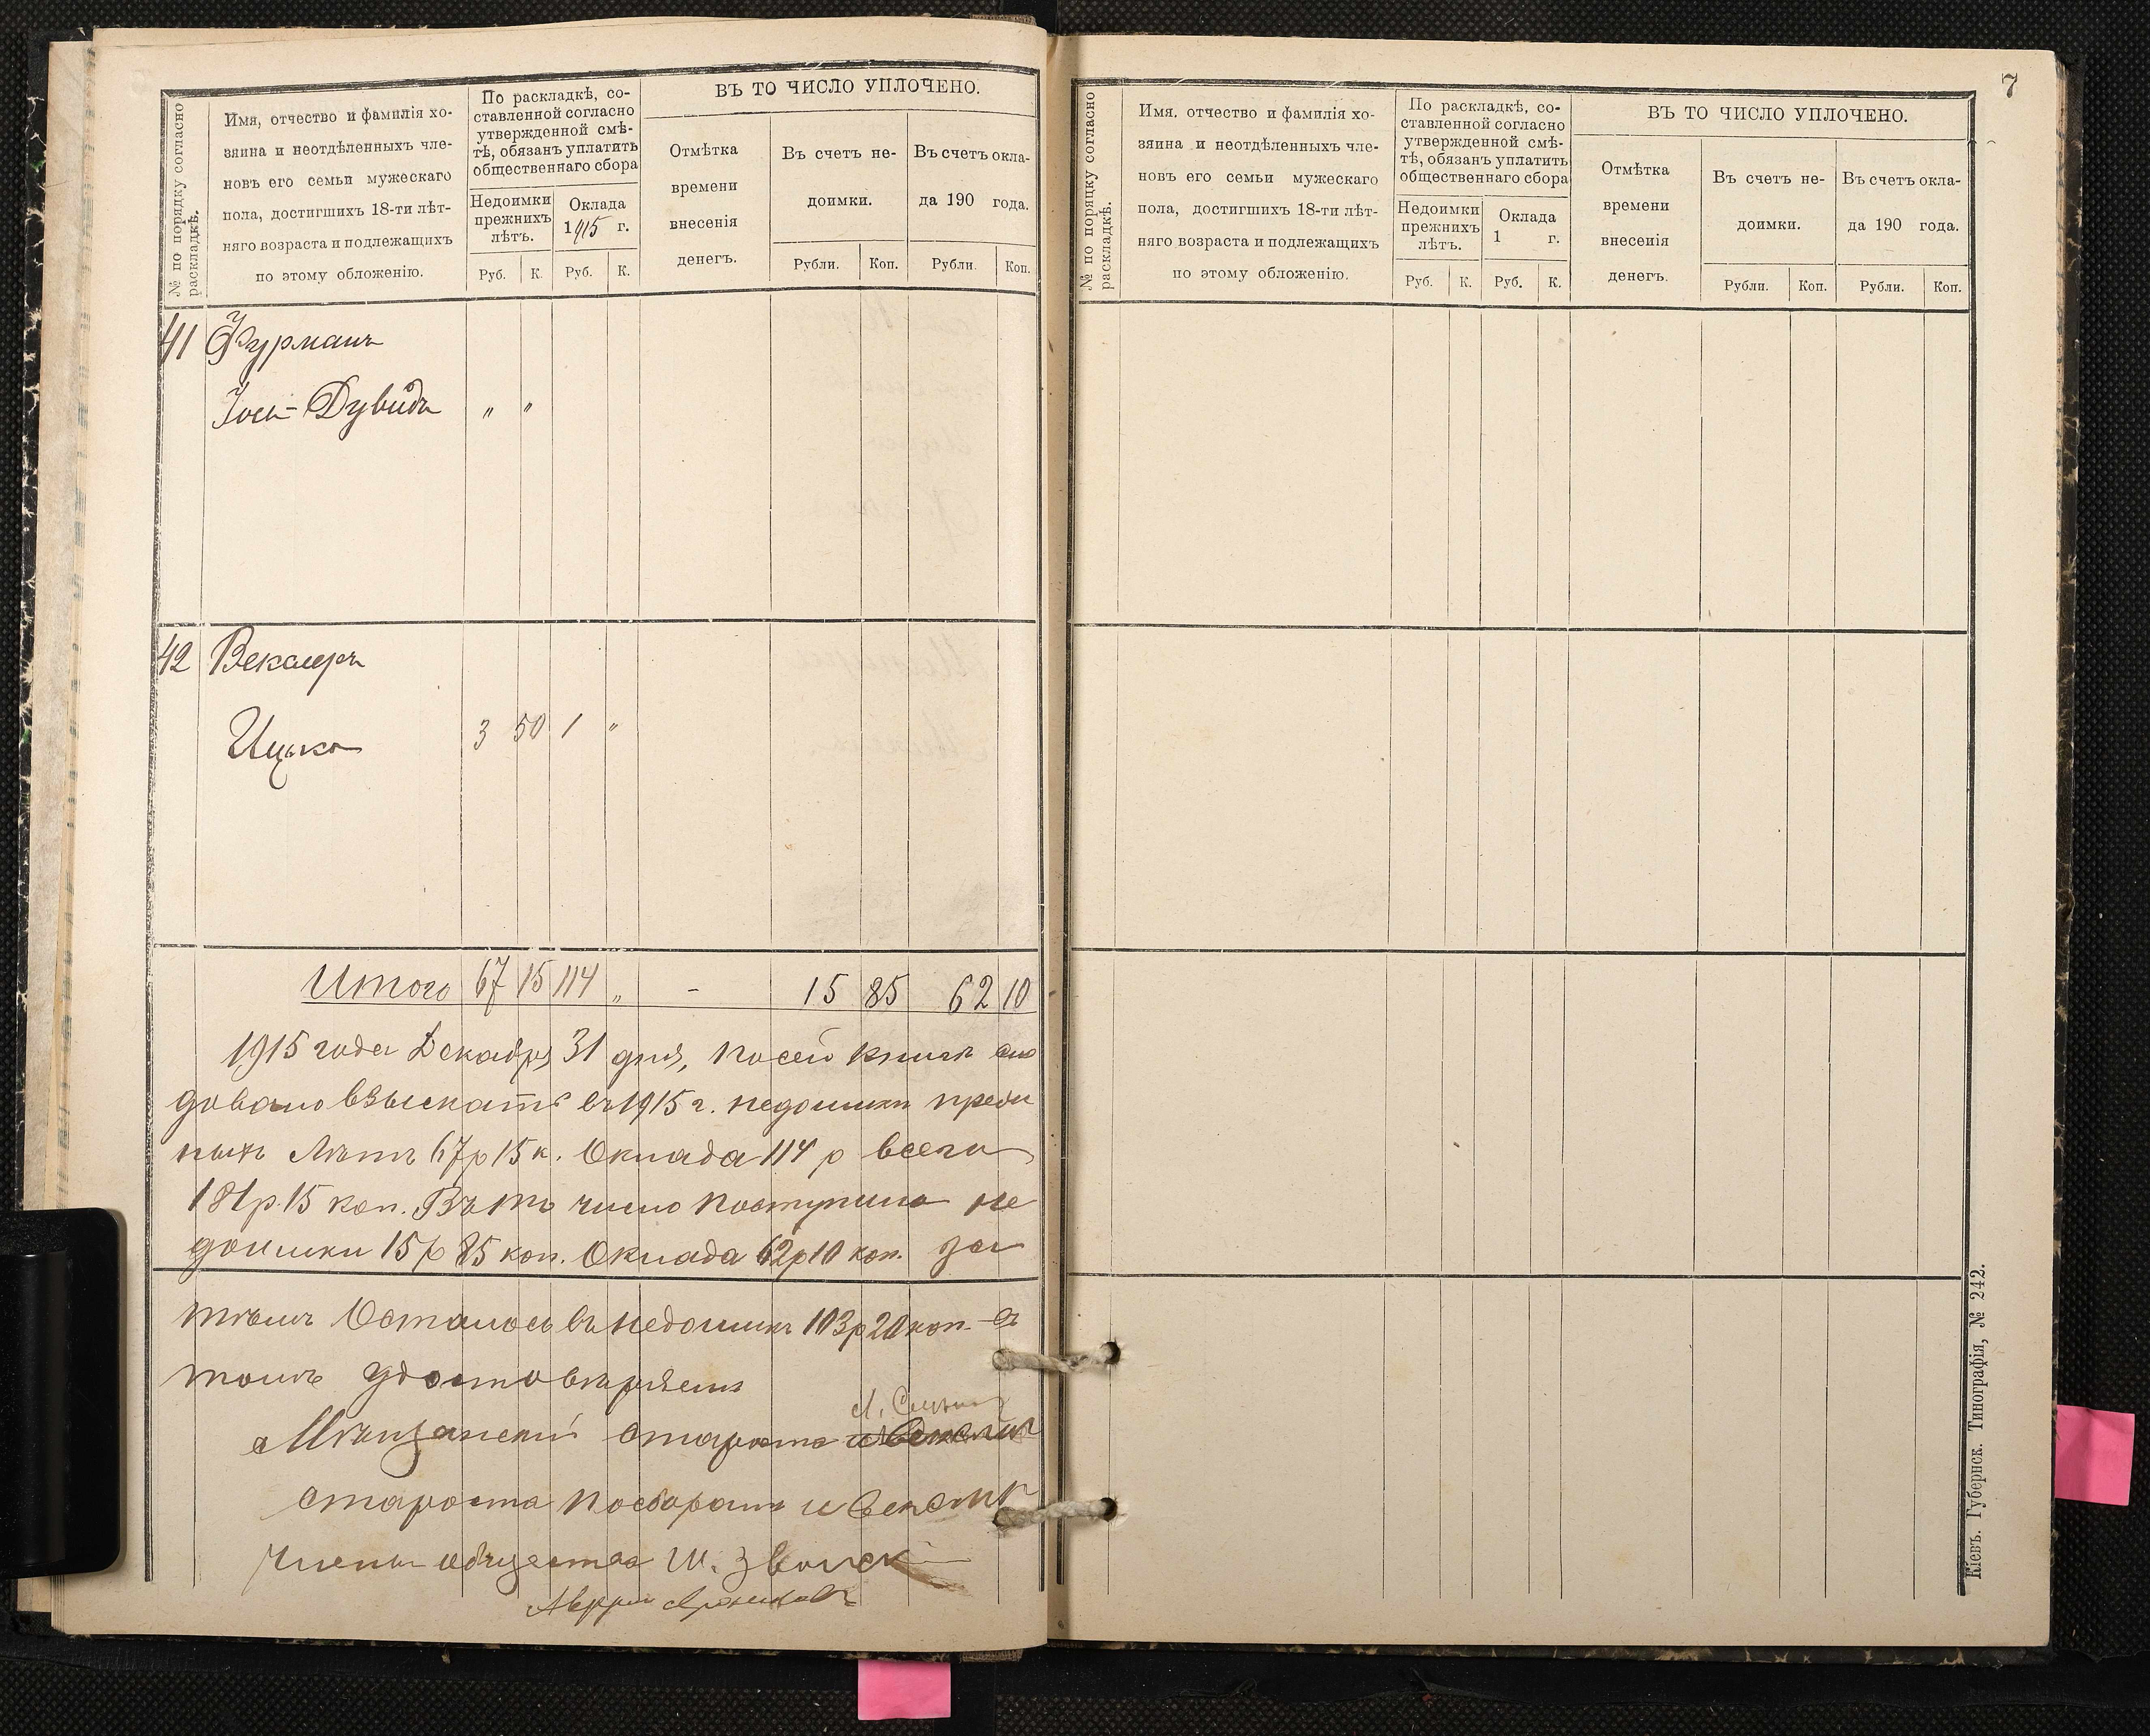 № по порядку согласно
раскладкѣ.
Имя, отчество и фамилія хо-
зяина и неотдѣленныхъ чле-
новъ его семьи мужескаго
пола, достигшихъ 18-ти лѣт-
няго возраста и подлежащихъ
по этому обложенію.
По раскладкѣ, со-
ставленной согласно
утвержденной смѣ-
тѣ, обязанъ уплатить
общественнаго сбора
Недоимки
прежнихъ
лѣтъ.
Оклада
1915 г.
Руб. К. Руб. К.
ВЪ ТО ЧИСЛО УПЛОЧЕНО.
Отмѣтка
времени
внесенія
денегъ.
Въ счетъ не-
доимки.
Въ счетъ окла-
да 190 года.
Рубли. Коп. Рубли. Коп.
41 Фурманъ
Іось-Дувидъ " "
42 Векслеръ
Ицько 3 50 1 "
Итого 67 15 114 " - 15 85 62 10
1915 года Декабря 31 дня, по сей книгѣ слѣ
довало взыскать въ 1915 г. недоимки преж
ныхъ Лѣтъ 67р 15к. Оклада 114 р всего
181р. 15 коп. Въ то число поступило не
доимки 15р 85 коп. Оклада 62р 10 коп. за
тѣмъ Осталось въ недоимкѣ 103р 20 коп. въ
томъ удостовѣряемъ
Мѣщанскій староста
староста по сборамъ
Члены общества Ш.
7
№ по порядку согласно
раскладкѣ.
Имя, отчество и фамилія хо-
зяина и неотдѣленныхъ чле-
новъ его семьи мужескаго
пола, достигшихъ 18-ти лѣт-
няго возраста и подлежащихъ
по этому обложенію.
По раскладкѣ, со-
ставленной согласно
утвержденной смѣ-
тѣ, обязанъ уплатить
общественнаго сбора
Недоимки
прежнихъ
лѣтъ.
Оклада
1 г.
Руб. К. Руб. К.
ВЪ ТО ЧИСЛО УПЛОЧЕНО.
Отмѣтка
времени
внесенія
денегъ.
Въ счетъ не-
доимки.
Въ счетъ окла-
да 190 года.
Рубли. Коп. Рубли. Коп.
Кіевъ. Губернск. Типографія, № 242.